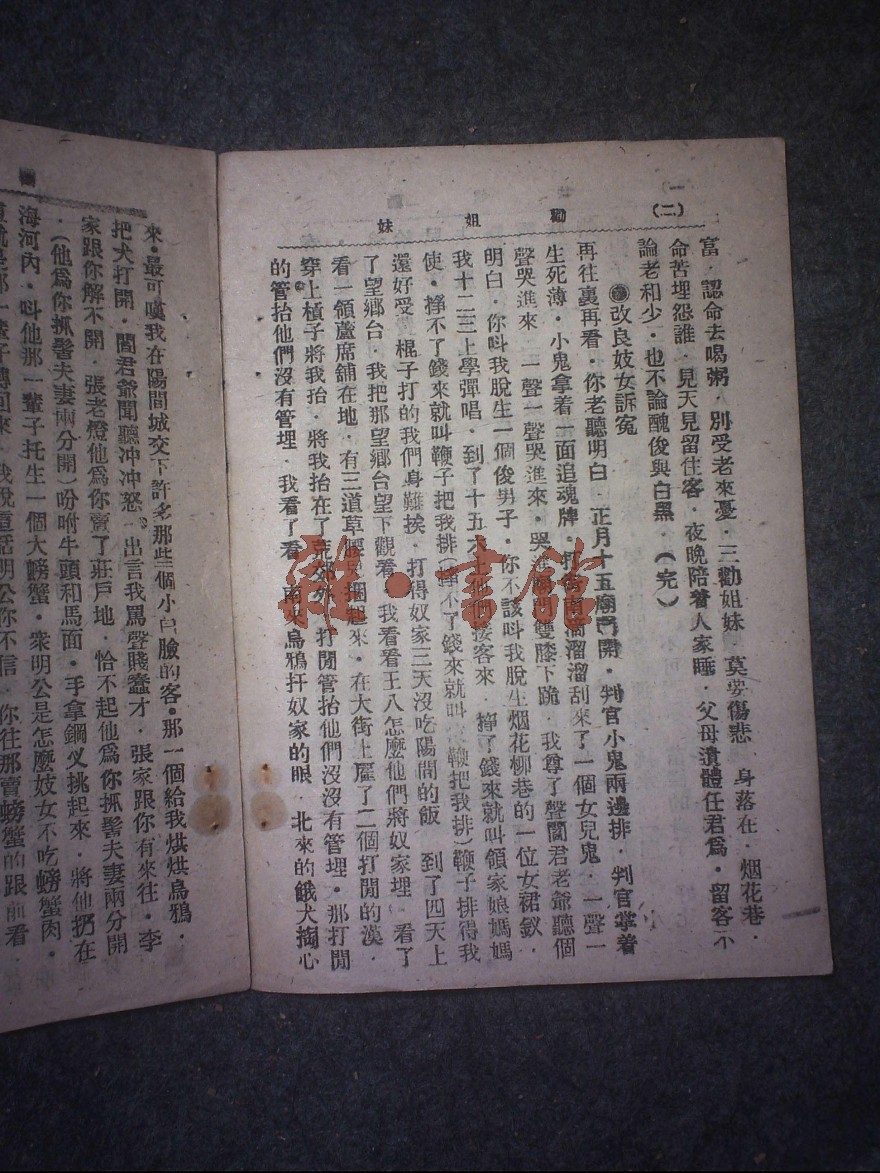 (二)
勸姐妹
富．認命去喝粥．別受老來憂．三勸姐妹．莫要傷悲．身落在．烟花巷．
命苦埋怨誰．見天見留住客．夜晚陪着人家睡．父母遺體任君爲．留客不
論老和少．也不論醜俊與白黑．(完)
改良妓女訴冤
再往裏再看．你老聽明白．正月十五廟門開．判官小鬼兩邊排．判官掌着
生死薄．小鬼拿着一面追魂牌．滴溜溜刮來了一個女兒鬼．一聲一
聲哭進來．一聲一聲哭進來．哭雙膝下跪．我尊了聲閻君老爺聽個
明白．你呌我脫生一個俊男子．你不該呌我脫生烟花柳巷的一位女裙釵．
我十二三上學彈唱．到了十五六上他們接客來．掙了錢來就叫領家娘媽媽
使．掙不了錢來就叫鞭子把我排(掙不了錢來就叫鞭把我排)鞭子排得我
還好受．棍子打的我們身難挨．打得奴家三天沒吃陽間的飯．到了四天上
了望鄉台．我把那望鄉台望下觀看．我看看王八怎麼他們將奴家埋．看了
看一領蘆席舖在地．有三道草腰捆起來．在大街上雇了二個打閒的漢．
穿上槓子將我抬．將我抬在了荒郊外．打閒管抬他們沒沒有管埋．那打閒
的管抬他們沒有管埋．我看了看．南來烏鴉扦奴家的眼．北來的餓犬掏心
來．最可嘆我在陽間城交下許多那些個小白臉的客．那一個給我烘烘烏鴉．
把犬打開．閻君爺聞聽沖沖怒．出言我罵聲賤蠢才．張家跟你有來往．李
家跟你解不開．張老燈他爲你賣了莊戶地．恰不起他爲你抓髻夫妻兩分開
．(他爲你抓髻夫妻兩分開)吩咐牛頭和馬面．手拿鋼义挑起來．將他扔在
海河內．呌他那一輩子托生一個大螃蟹．衆明公是怎麼妓女不吃螃蟹肉．
那一輩子轉回來．我說這話明公你不信．你往那賣螃蟹的跟前看．
雅·書館